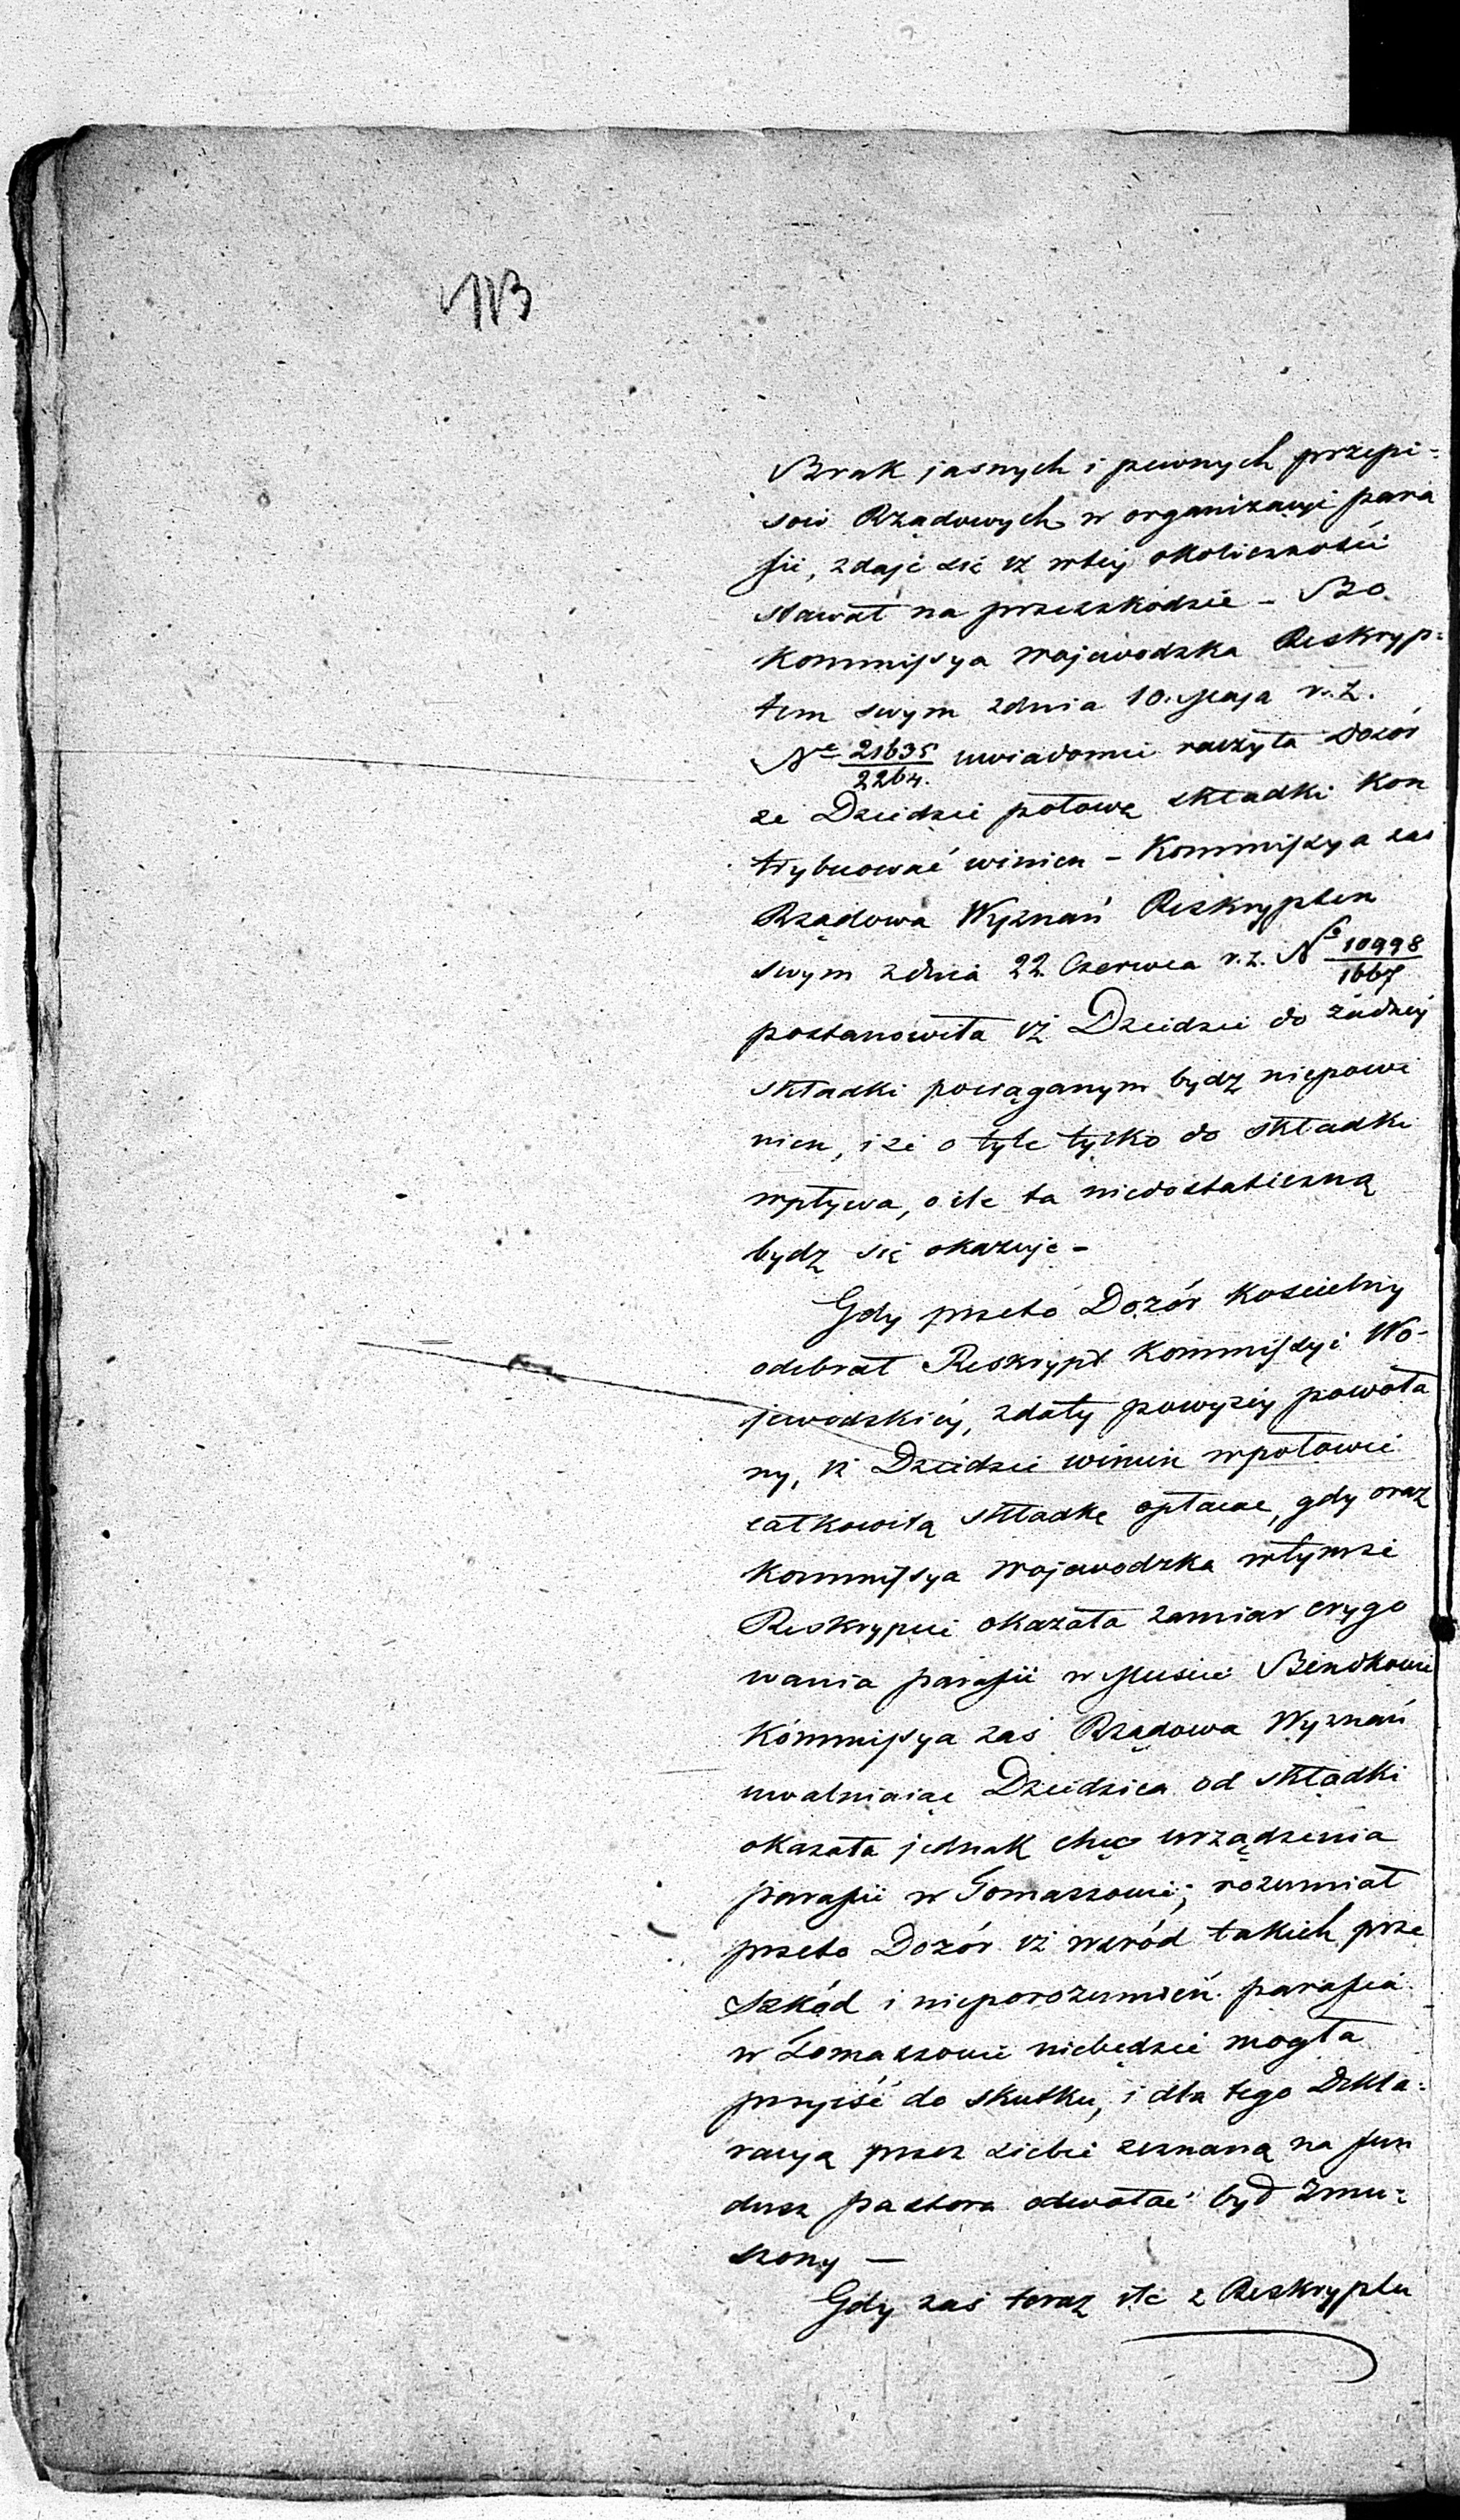 113
Brak jasnych i pewnych przepi=
sow Rządowych w organizacyi para
fii, zdaje się iż wtey okoliczności
stawał na przeszkodzie - Bo
Kommissya Wojewodzka Reskryp=
tem swym zdnia 10. Maja r. z.
No 21635/2264. uwiadomić raczyła Dozór
że Dziedzic połowę składki kon
trybuować winien - Kommissya zaś
Rządowa Wyznań Reskryptem
swym zdnia 22 Czerwca r. z. No 10998/1667
postanowiła iż Dziedzic do żadney
składki pociąganym bydz niepowi
nien, i że o tyle tylko do składki
wpływa, o ile ta niedostateczną
bydz się okazuje -
Gdy przeto Dozór Kościelny
odebrał Reskrypt Kommissyi Wo-
jewodzkiey, zdaty powyżey powoła
ny, iż Dziedzic winien wpołowie
całkowitą składkę opłacac, gdy oraz
Kommissya Wojewodzka wtymże
Reskrypcie okazała zamiar erygo
wania parafii w Mieście Bendkowie
Kommissya zaś Rządowa Wyznań
uwalniaiąc Dziedzica od składki
okazała jednak chęć urządzenia
parafii w Tomaszowie; rozumiał
przeto Dozór iż wśród takich prze
szkód i nieporozumień parafia
w Tomaszowie niebędzie mogła
przyiść do skutku, i dla tego Dekla=
racyą przez siebie zeznaną na fun
dusz pastora odwołać był zmu=
szony —
Gdy zaś teraz tle z Reskryptu